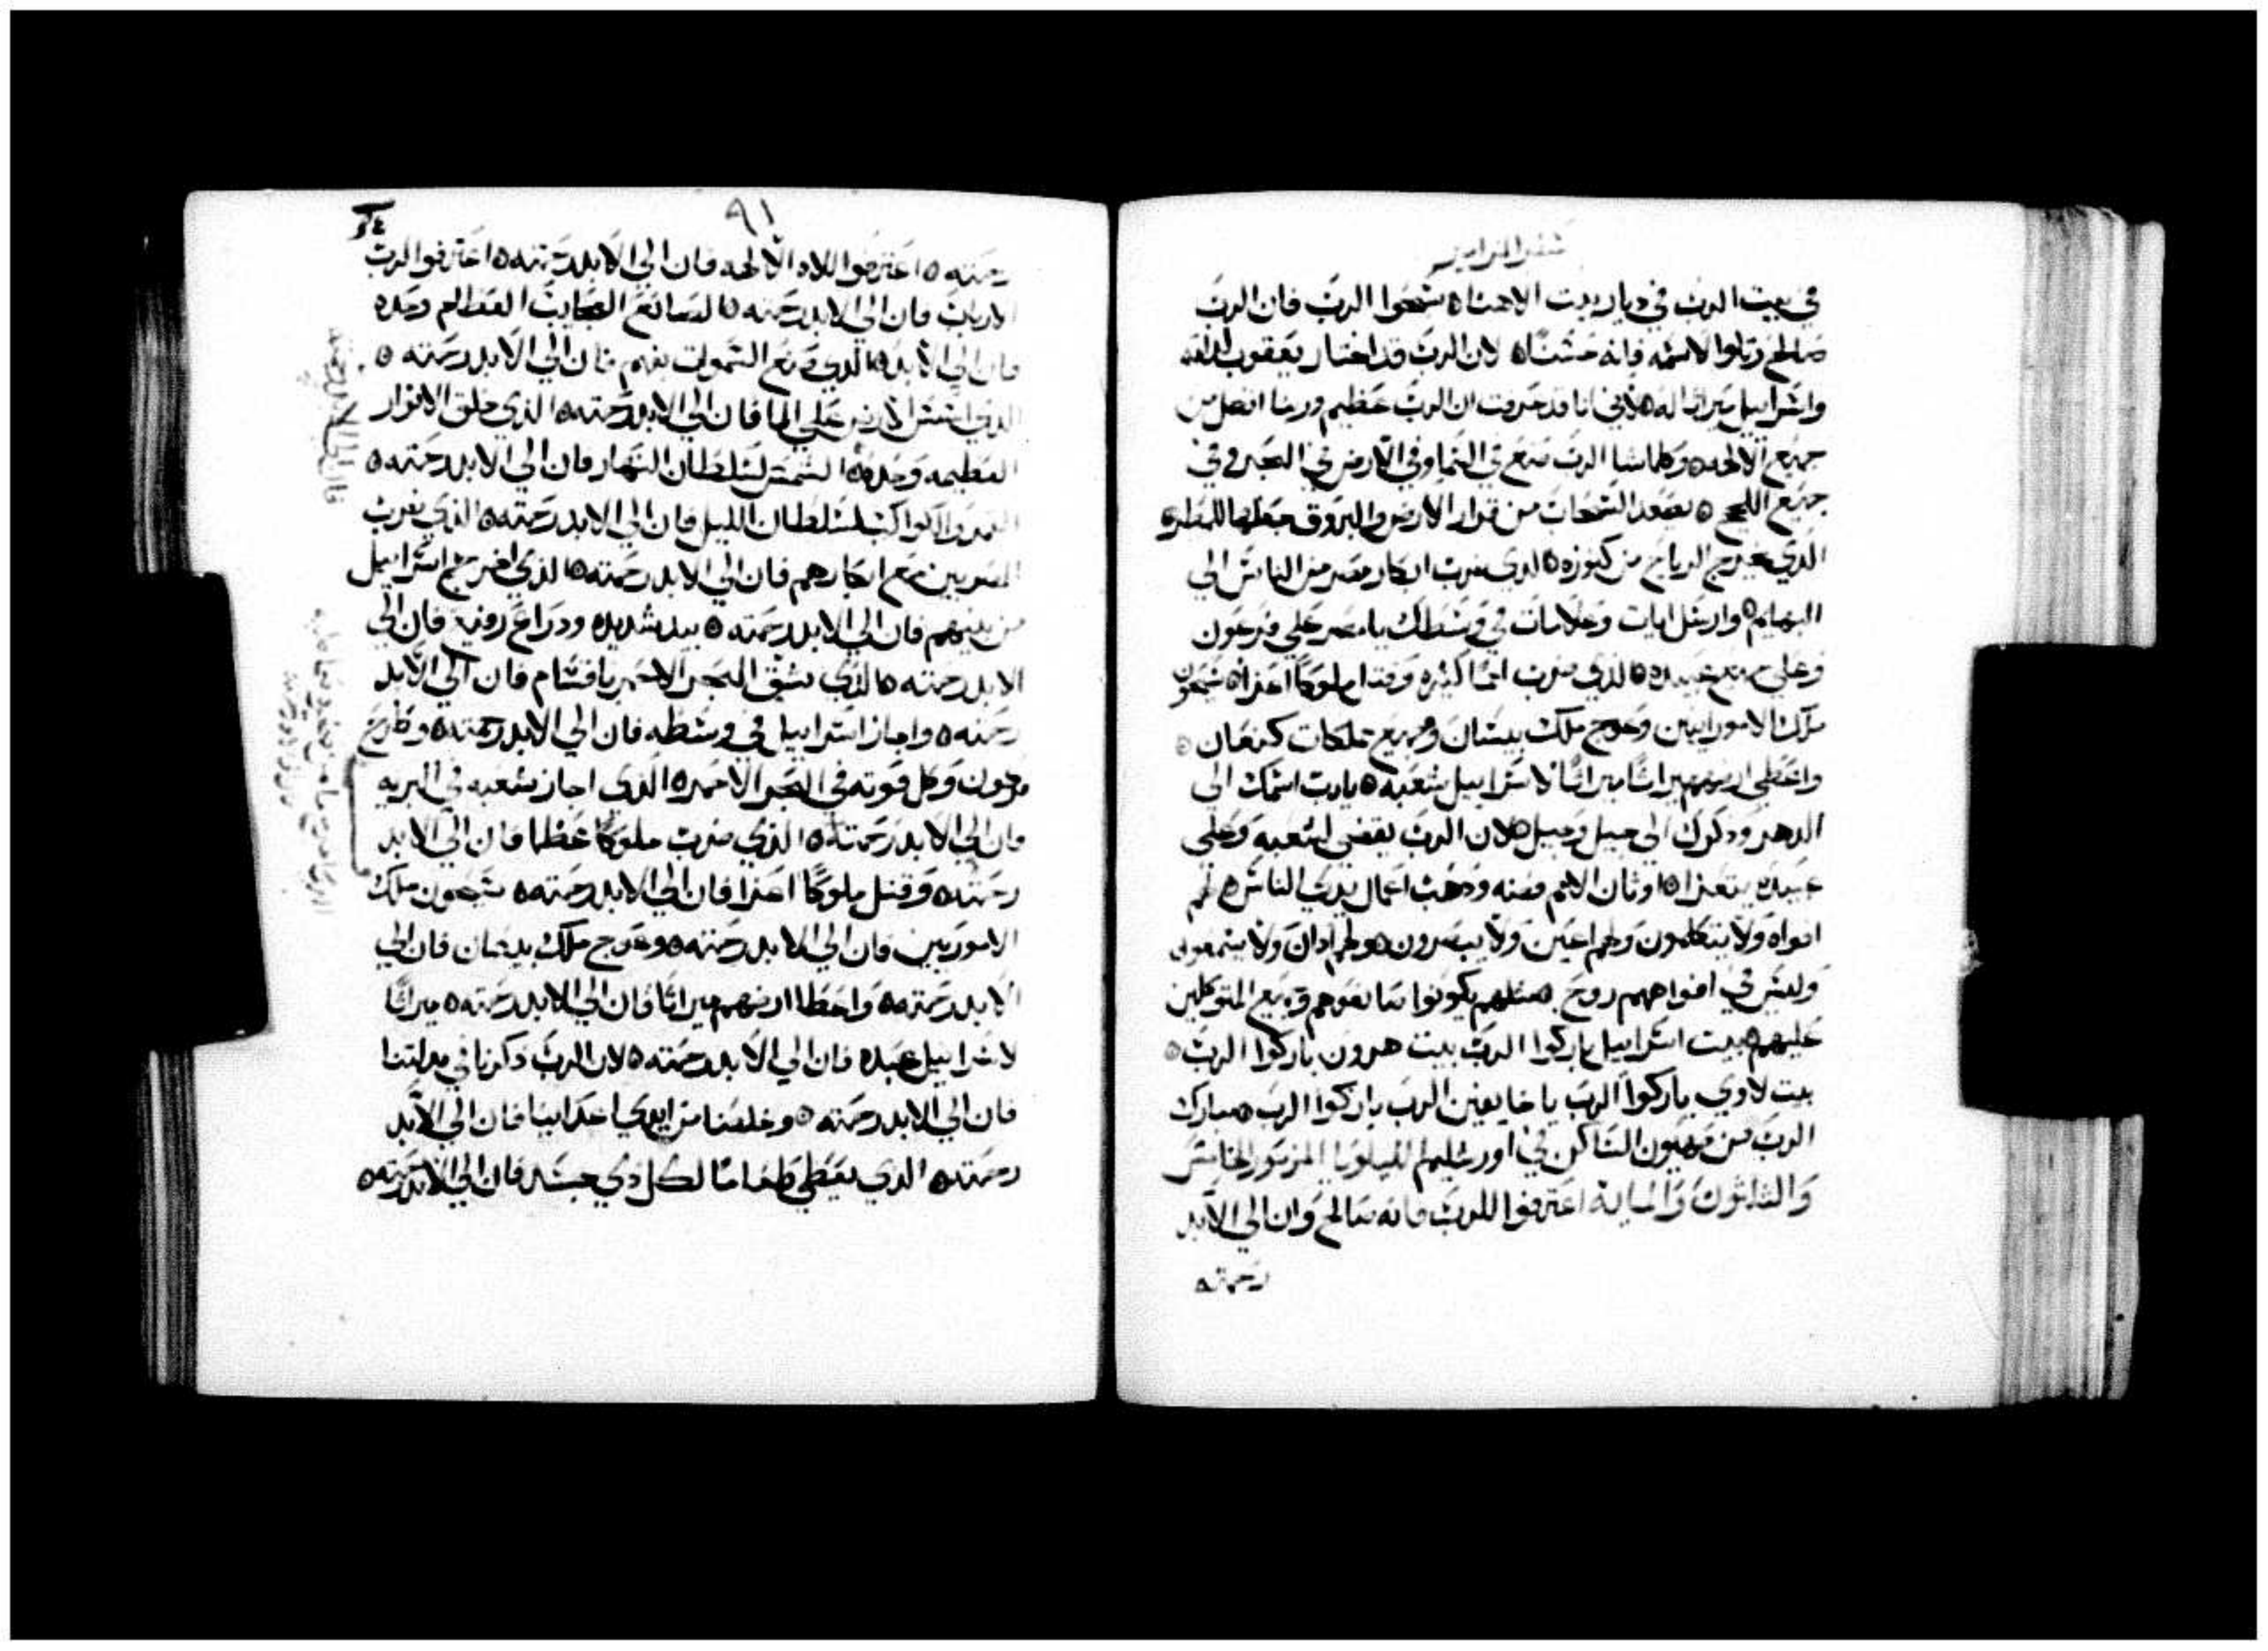 سفر المزامير
في بيت الرب في ديار بيت الاهنا ه سبحوا الرب فان الرب
صالح رتلوا لاسمه فانه حسنًا ه لان الرب قد اختار يعقوب له
واسراييل ميراثا له ه لأني انا قد عرفت ان الرب عظيم وربنا افضل من
جميع الالهه ه وكلما شا الرب صنع في السما وفي الارض في البحر وفي
جميع اللجج ه يصعد السحاب من قرار الارض والبروق جعلها للمطر ه
الذي يخرج الرياح من كنوزه ه الذي ضرب ابكار مصر من الناس الي
البهايم ه وارسل ايات وعلامات في وسطك يا مصر علي فرعون
وعلي جميع عبيده ه الذي ضرب اممًا كثيره وقتل ملوكًا اعزا ه سيحون
ملك الاموراييين وعوج ملك بيسان وجميع مملكات كنعان ه
واعطي ارضهم ميراثًا ميراثًا لاسراييل شعبه ه يارب اسمك الي
الدهر وذكرك الي جيل وجيل ه لان الرب يقضي لشعبه وعلي
عبيده يتعزا ه اوثان الامم فضه وذهب اعمال يدي الناس ه لهم
افواه ولا يتكلمون ولهم اعين ولا يبصرون ه ولهم اذان ولا يسمعون
وليس في افواههم روح ه مثلهم يكونوا صانعوهم وجميع المتوكلين
عليهم ه بيت اسراييل باركوا الرب بيت هرون باركوا الرب ه
بيت لاوي باركوا الرب يا خايفين الرب باركوا الرب ه مبارك
الرب من صهيون الساكن في اورشليم الليلويا المزمور الخامس
والثلثون والمايه اعترفوا للرب فانه صالح وان الي الابد
رحمته
٩١
رحمته ه اعترفوا للاه الالهه فان الي الابد رحمته ه اعترفوا لرب
الارباب فان الي الابد رحمته ه الصانع العجايب العظام وحده
فان الي الابد ه الذي صنع السموات بفهم فان الي الابد رحمته ه
الذي اسس الارض علي الما فان الي الابد رحمته ه الذي خلق الانوار
العظيمه وحده ه الشمس لسلطان النهار فان الي الابد رحمته ه
القمر والكواكب لسلطان الليل فان الي الابد رحمته ه الذي ضرب
المصريين مع ابكارهم فان الي الابد رحمته ه الذي اخرج اسراييل
من بينهم فان الي الابد رحمته ه بيد شديده ودراع رفيع فان الي
الابد رحمته ه الذي شق البحر الاحمر باقسام فان الي الابد
رحمته ه واجاز اسراييل في وسطه فان الي الابد رحمته ه وطرح
فرعون وكل قوته في البحر الاحمر ه الذي اجاز شعبه في البريه
فان الي الابد رحمته ه الذي ضرب ملوكًا عظما فان الي الابد
رحمته ه وقتل ملوكًا اعزا فان الي الابد رحمته ه سيحون ملك
الاموريين فان الي الابد رحمته ه وعوج ملك فان الي
الابد رحمته ه واعطا ارضهم ميراثًا فان الي الابد رحمته ه ميراثًا
لاسراييل عبده فان الي الابد رحمته ه لان الرب ذكرنا في مذلتنا
فان الي الابد رحمته ه وخلصنا من ايدي اعداينا فان الي الابد
رحمته ه الذي يعطي طعامًا لكل ذي جسد فان الي الابد رحمته ه